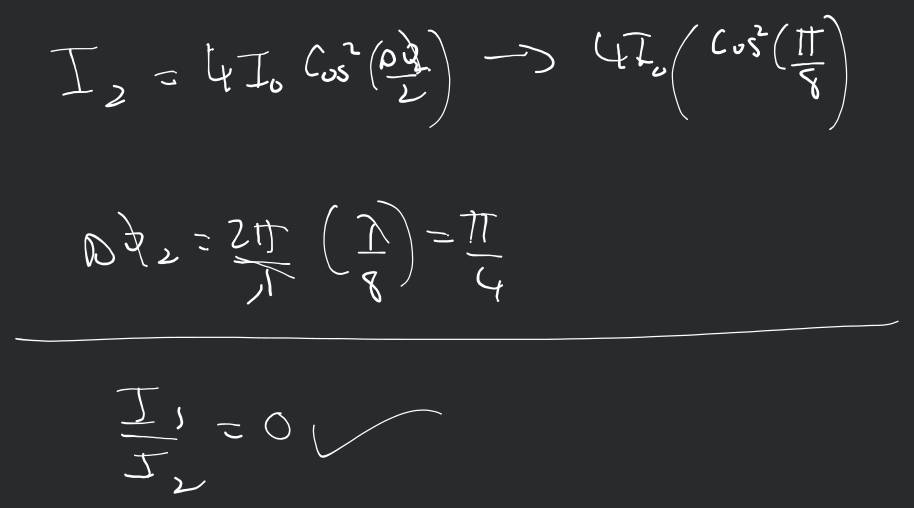 I₂ = 4I₀ Cos²(Δϕ₂/2) → 4I₀(Cos²(π/8)
Δϕ₂ = 2π/λ (λ/8) = π/4
I₁/I₂ = 0 ✓